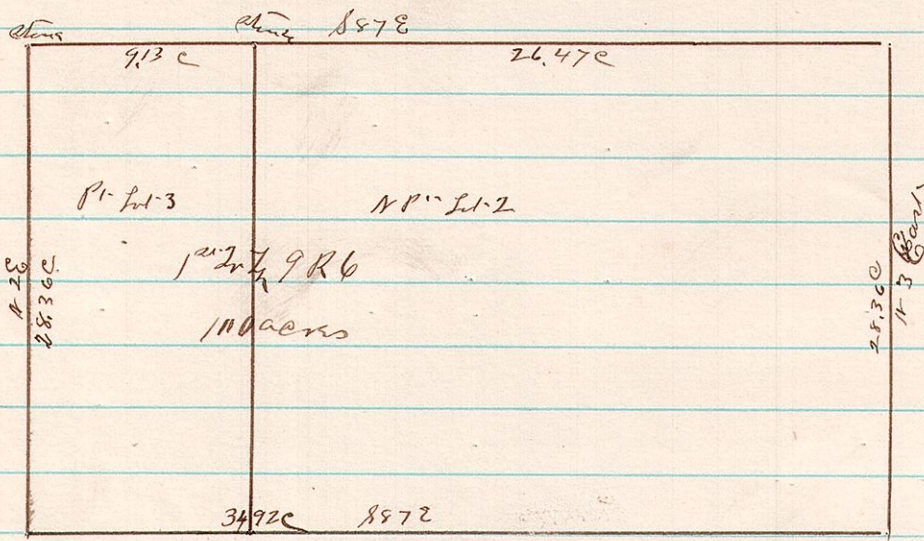 Stone Stone S87E
9.13 C 26.47C
Pt Lot 3 N Pt Lot 2
1st Qr T 9 R 6
100 acres
N 2 E
28.36 C
28.36 C
N 3 East
34 92 C S87E